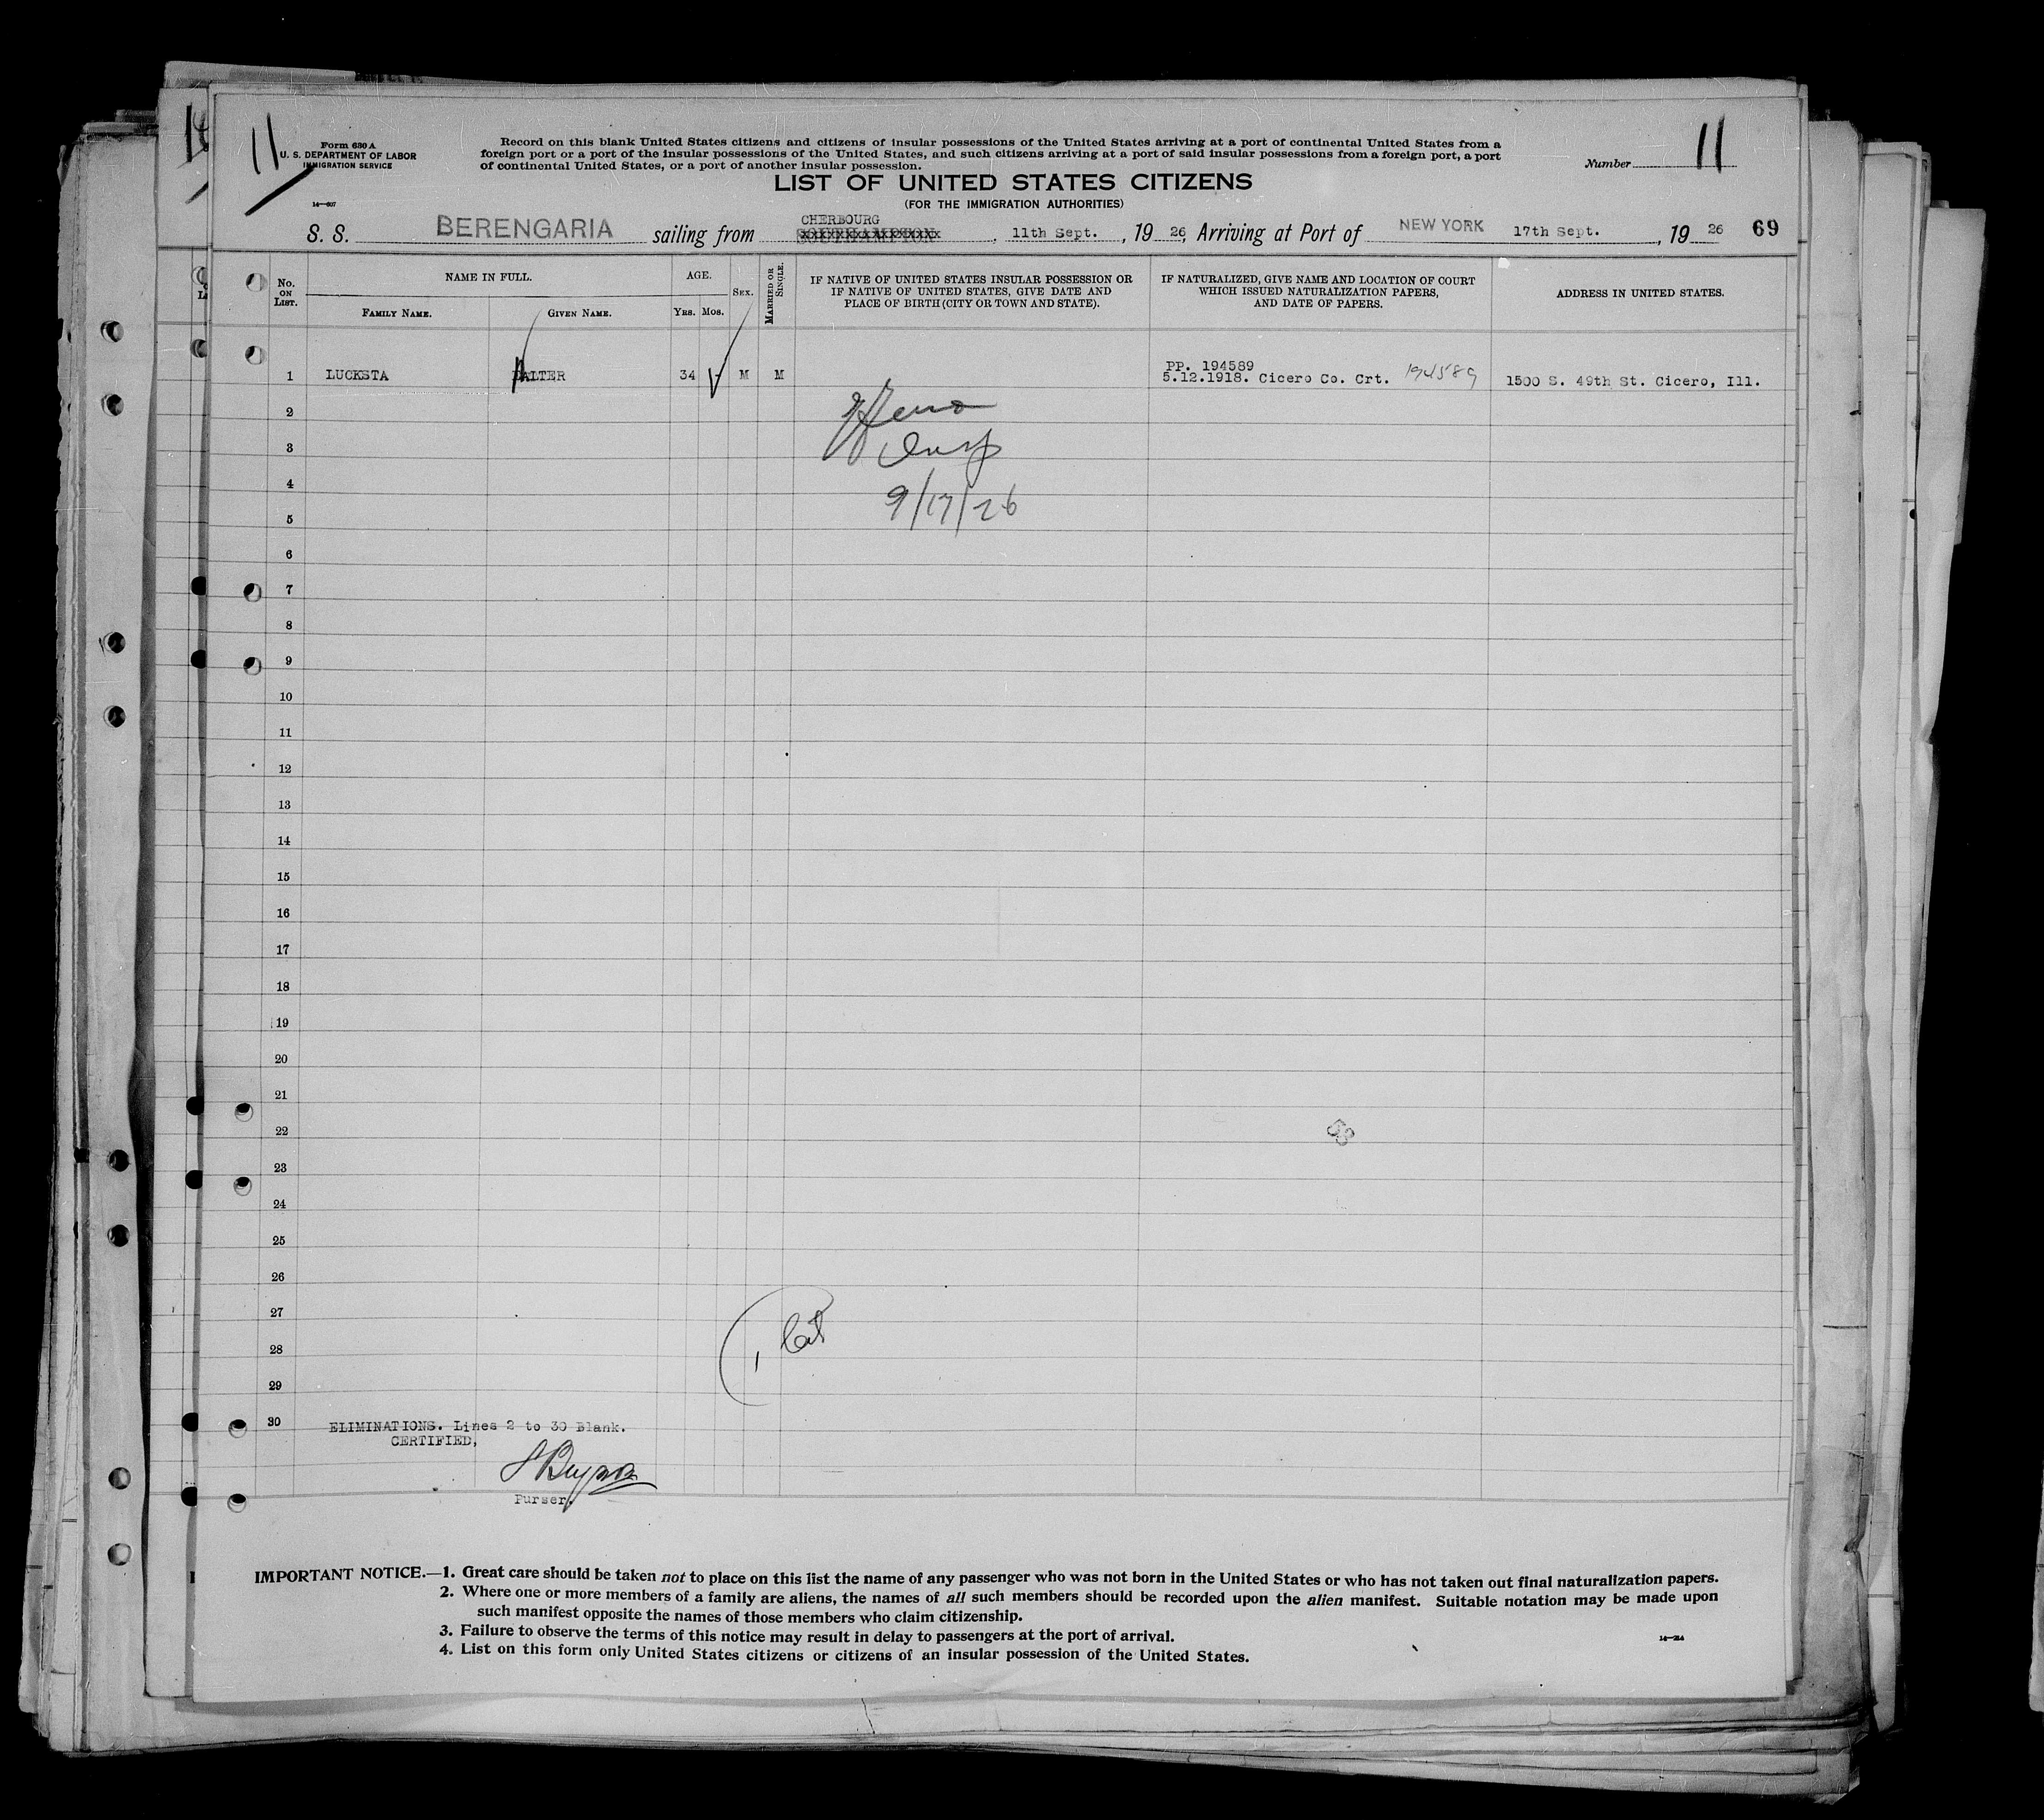 11
Form 630 A
U. S. DEPARTMENT OF LABOR
IMMIGRATION SERVICE
14—607
Record on this blank United States citizens and citizens of insular possessions of the United States arriving at a port of continental United States from a
foreign port or a port of the insular possessions of the United States, and such citizens arriving at a port of said insular possessions from a foreign port, a port
of continental United States, or a port of another insular possession.
Number 11
LIST OF UNITED STATES CITIZENS
(FOR THE IMMIGRATION AUTHORITIES)
CHERBOURG
S. S. BERENGARIA sailing from SOUTHAMPTON, 11th Sept., 19 26, Arriving at Port of NEW YORK 17th Sept., 19 26 69
No. ON LIST. NAME IN FULL. FAMILY NAME. GIVEN NAME. AGE. YRS. MOS. SEX. MARRIED OR SINGLE.
IF NATIVE OF UNITED STATES INSULAR POSSESSION OR
IF NATIVE OF UNITED STATES, GIVE DATE AND
PLACE OF BIRTH (CITY OR TOWN AND STATE).
IF NATURALIZED, GIVE NAME AND LOCATION OF COURT
WHICH ISSUED NATURALIZATION PAPERS,
AND DATE OF PAPERS.
ADDRESS IN UNITED STATES.
PP. 194589
1 LUCKSTA ALTER 34 - M M 5.12.1918. Cicero Co. Crt. 194589 1500 S. 49th St. Cicero, Ill.
2
3 Insp
4
9/17/26
5
6
7
8
9
10
11
12
13
14
15
16
17
18
19
20
21
22
23
24
25
26
27
28
29
30 ELIMINATIONS. Lines 2 to 30 Blank.
CERTIFIED,
Purser.
IMPORTANT NOTICE.—1. Great care should be taken not to place on this list the name of any passenger who was not born in the United States or who has not taken out final naturalization papers.
2. Where one or more members of a family are aliens, the names of all such members should be recorded upon the alien manifest. Suitable notation may be made upon
such manifest opposite the names of those members who claim citizenship.
3. Failure to observe the terms of this notice may result in delay to passengers at the port of arrival.
4. List on this form only United States citizens or citizens of an insular possession of the United States.